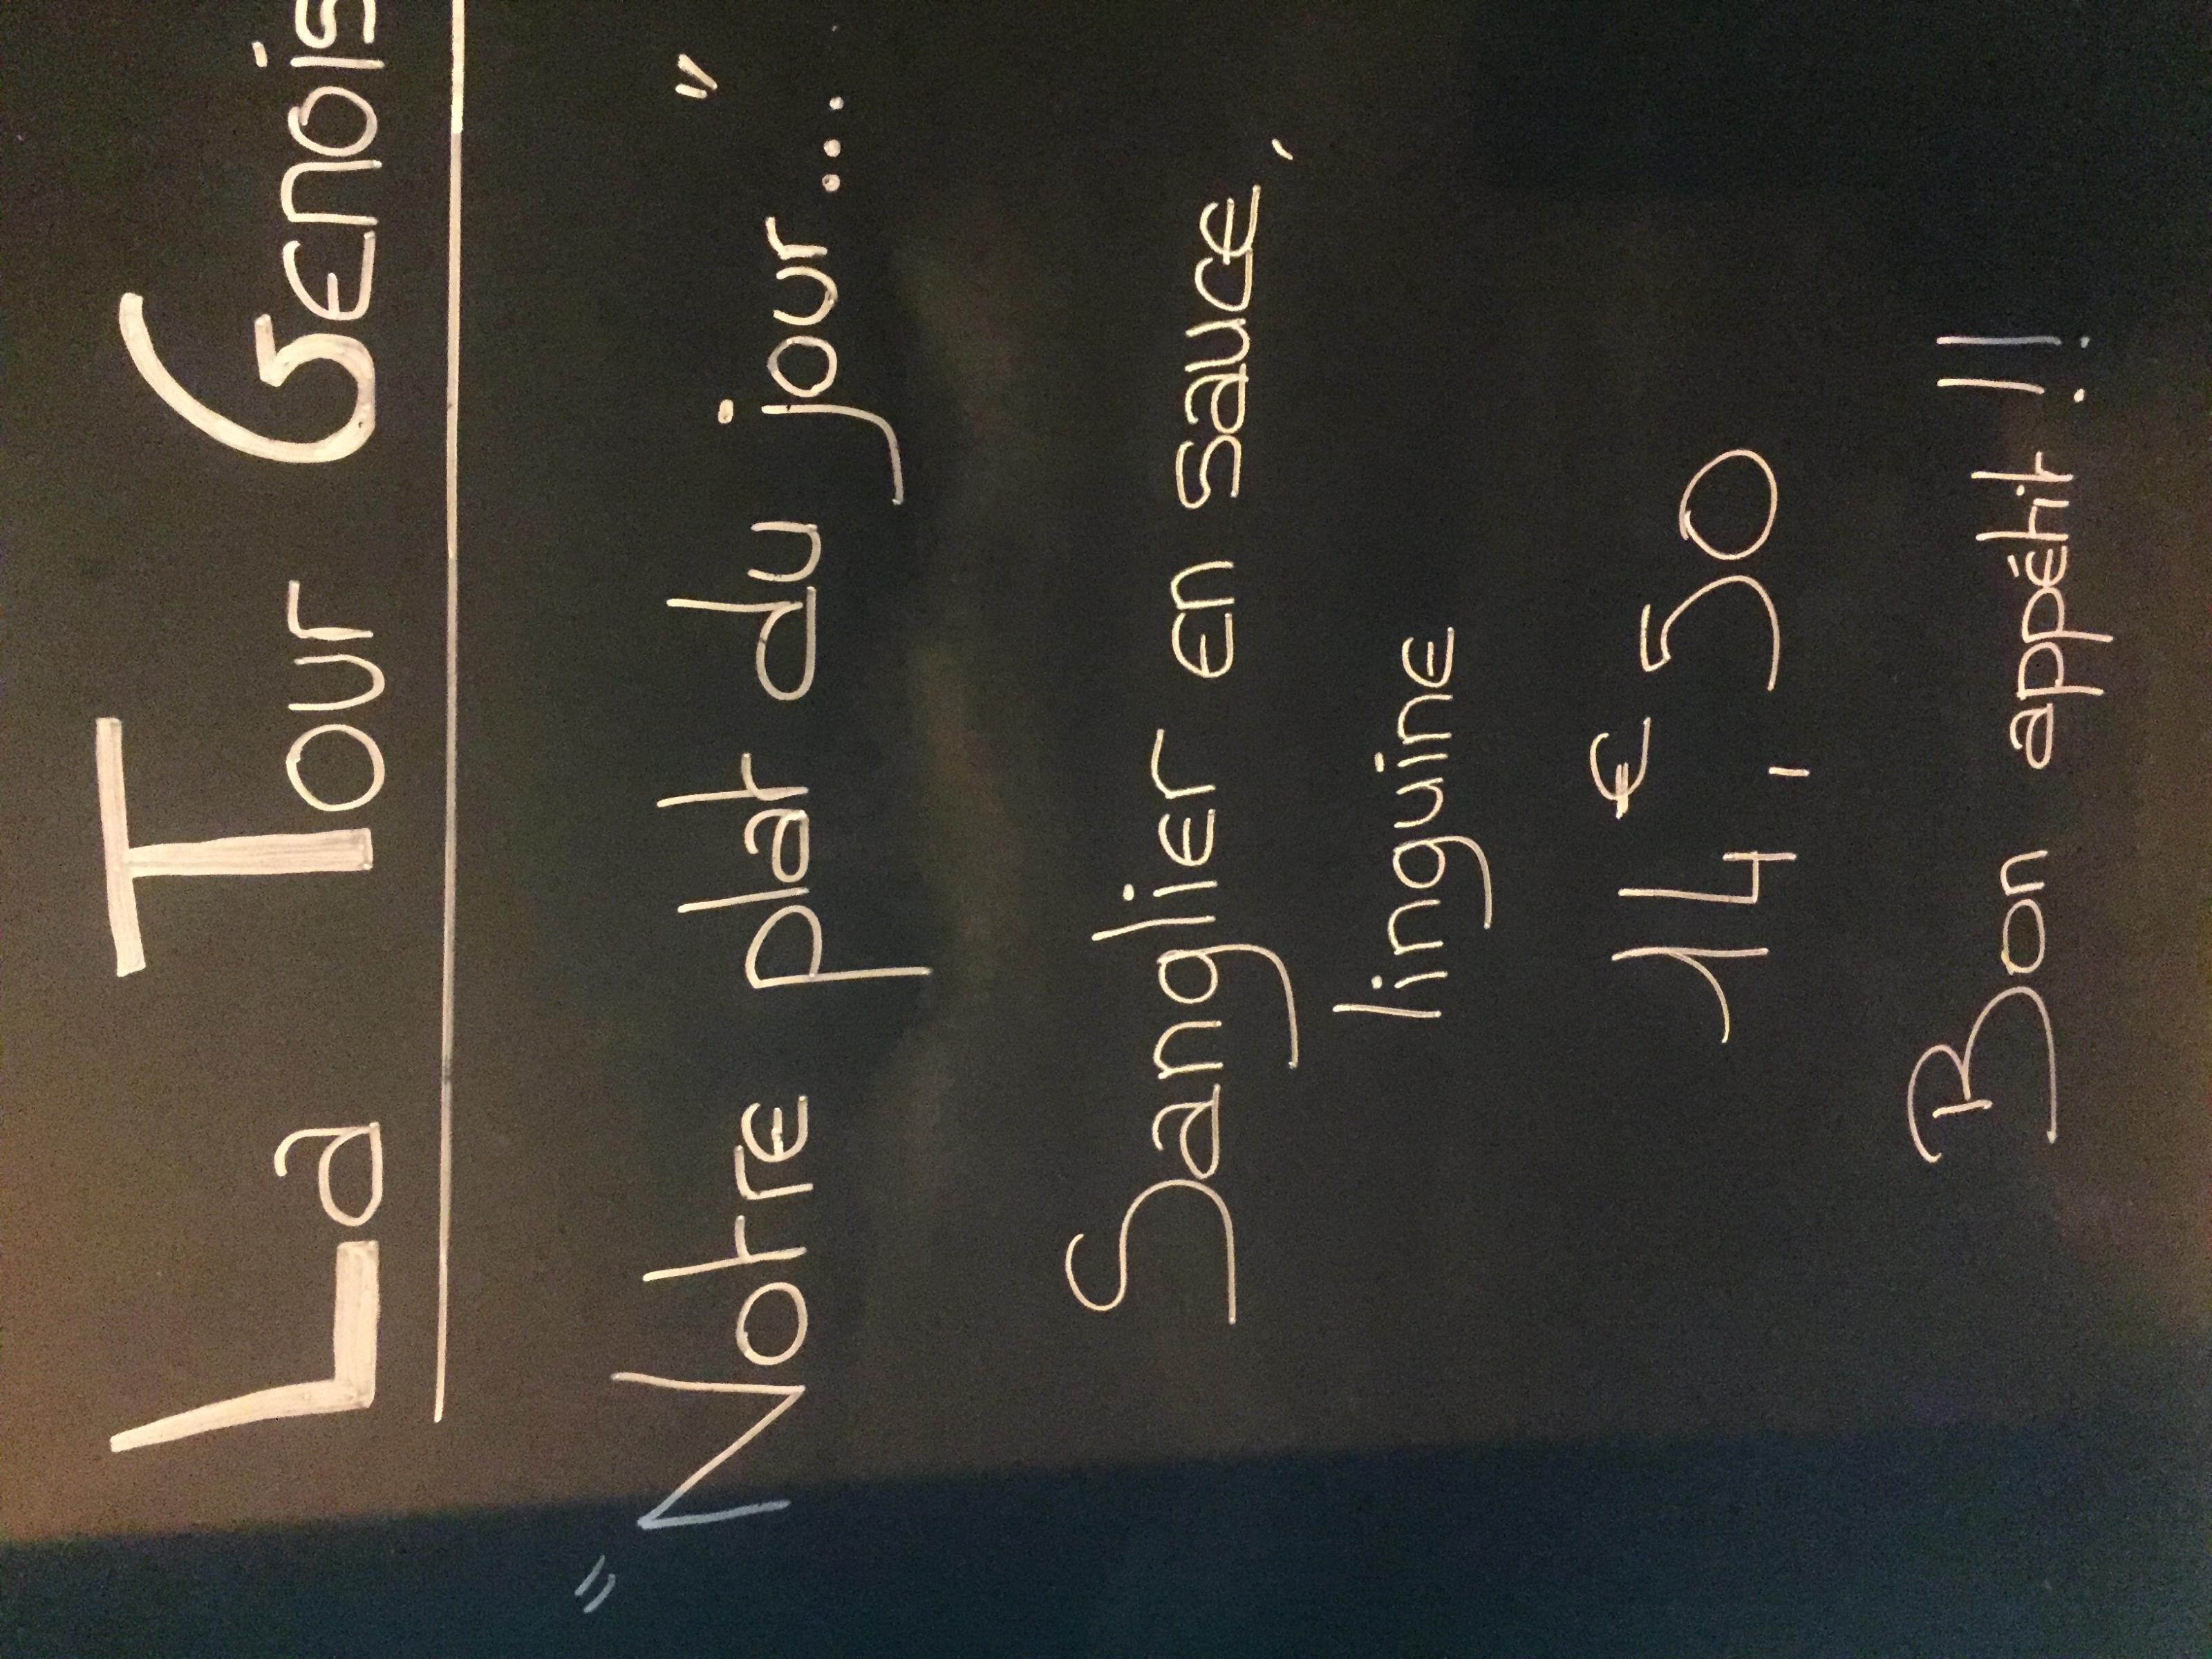 La Tour Genois
"Notre plat du jour...."
Sanglier en sauce,
linguine
14,€50
Bon appétit !!